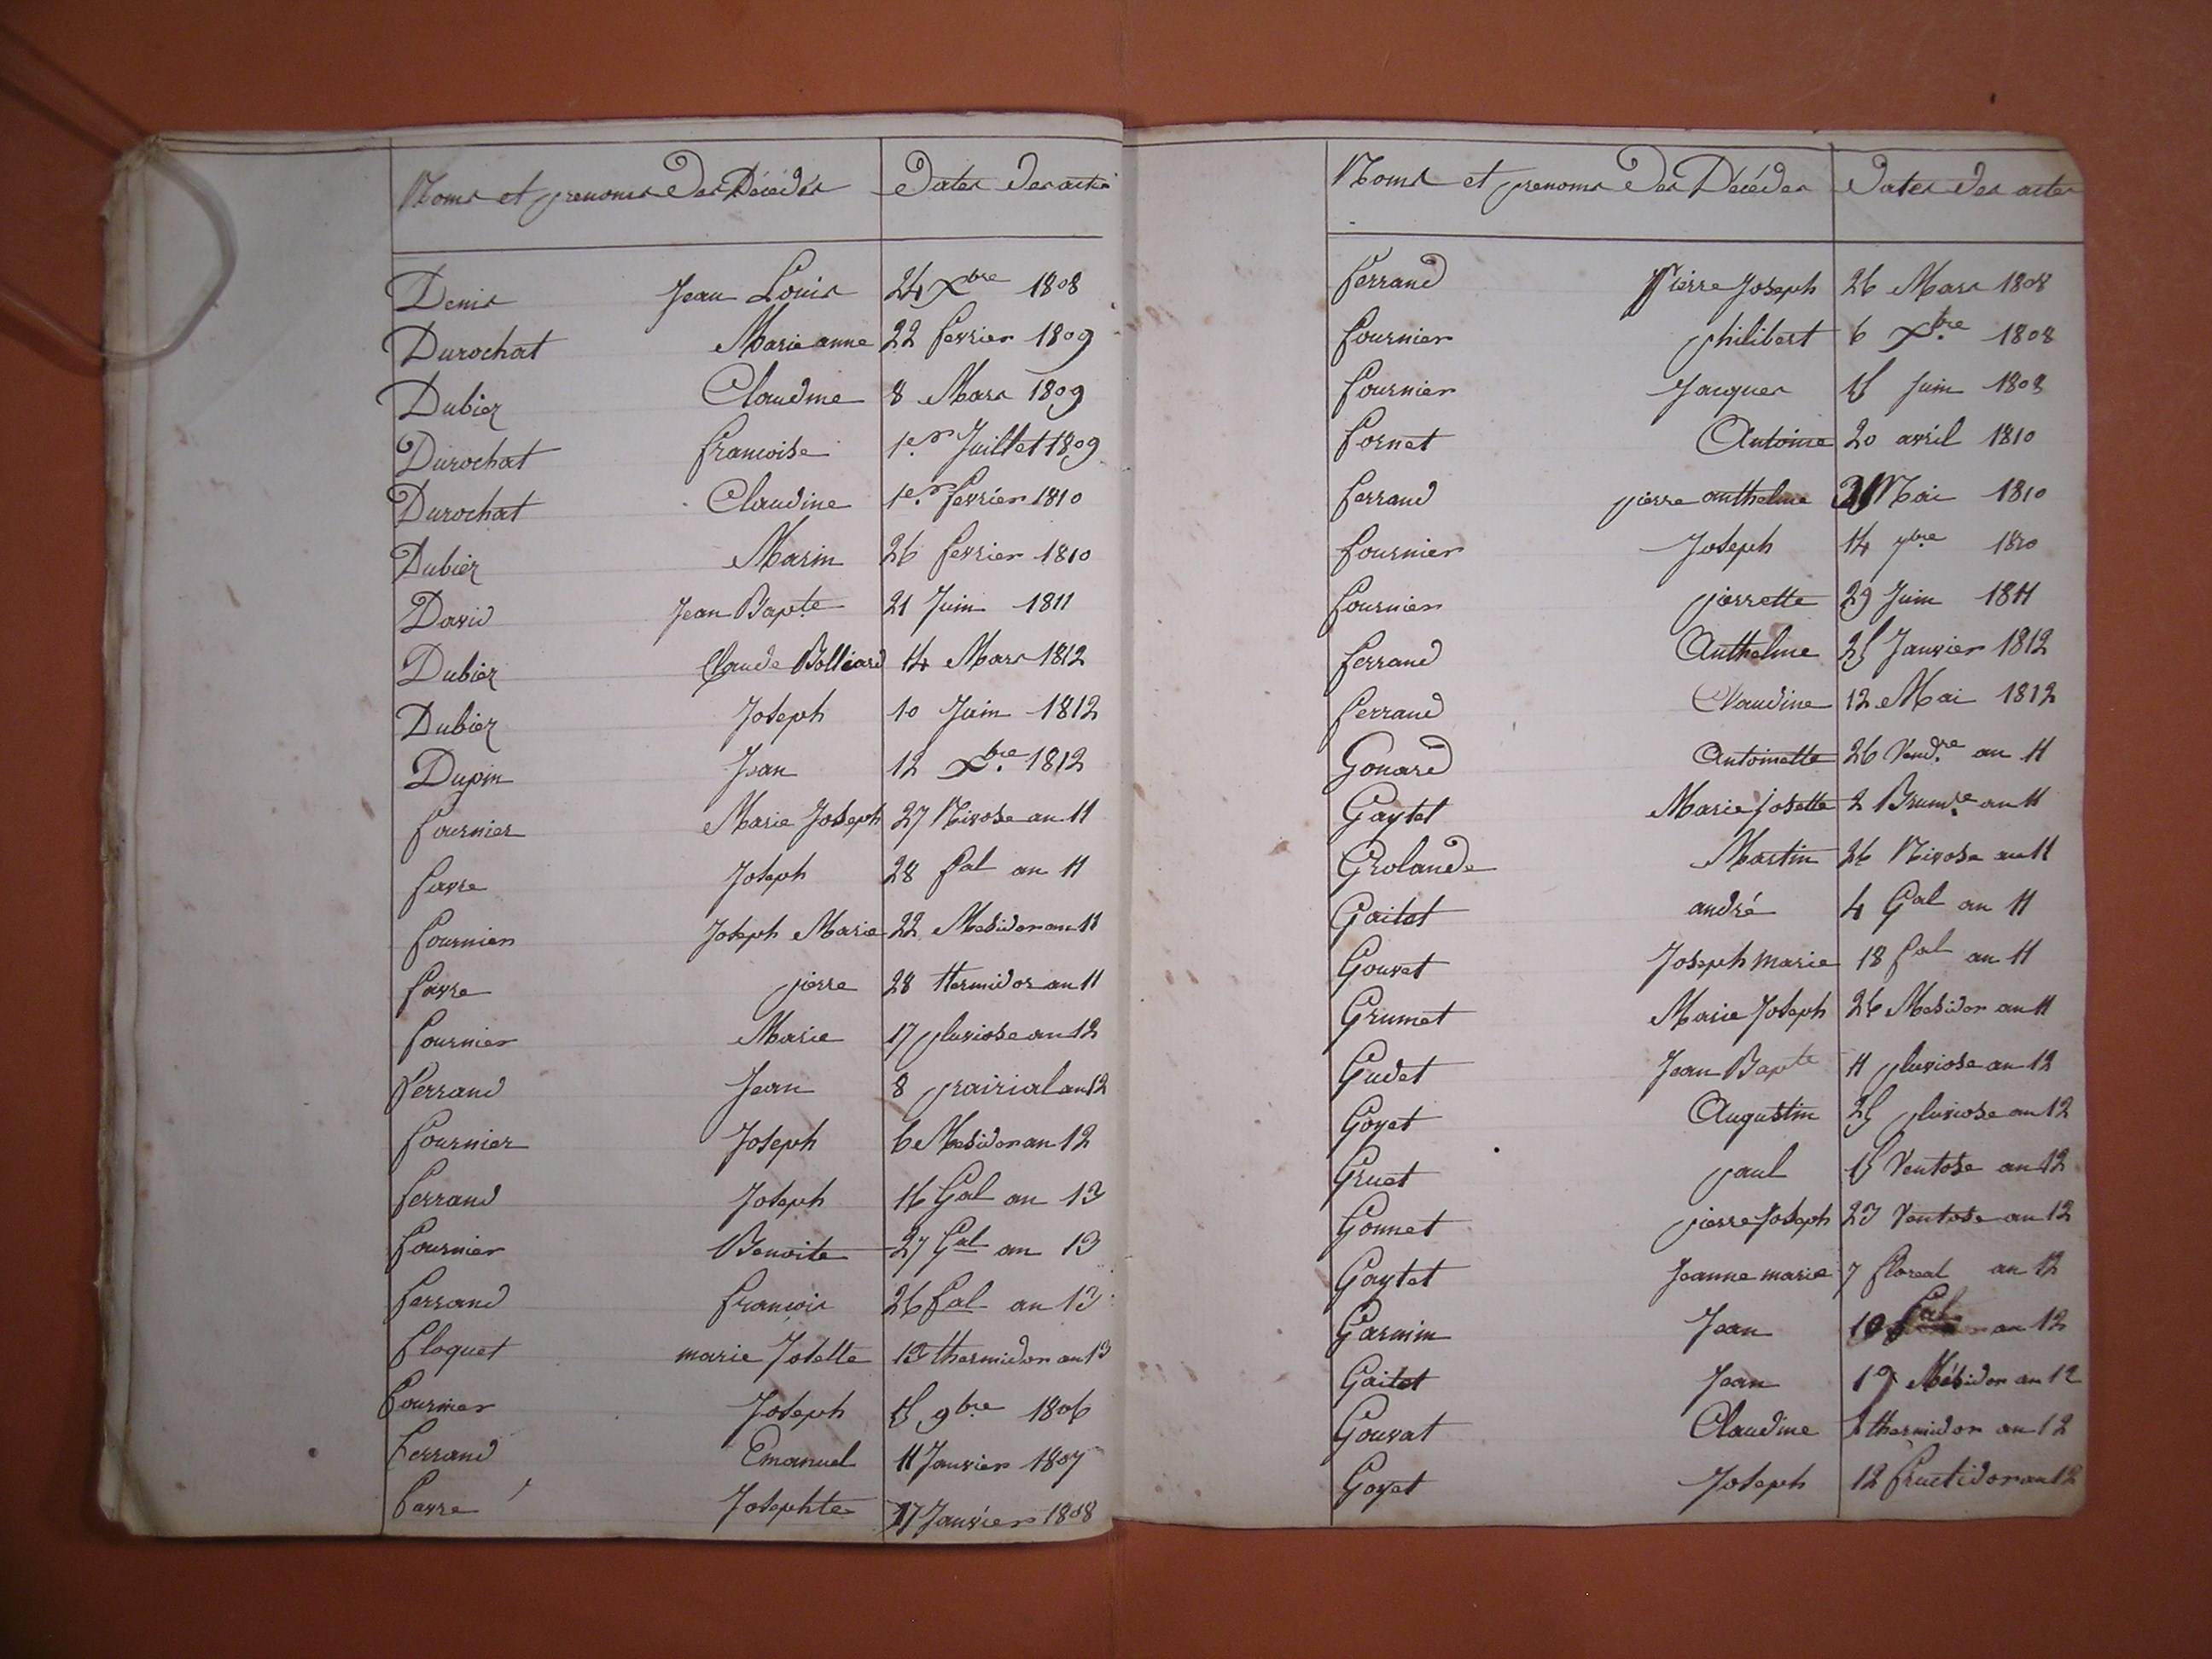 Noms et prenoms Des Décédés Dates des actes
Denis Jean Louis 24 Xbre 1808
Durochat Marie anne 22 fevrier 1809
Dubiez Claudine 8 Mars 1809
Durochat francoise 1er Juillet 1809
Durochat Claudine 1er fevrier 1810
Dubiez Marin 26 fevrier 1810
David Jean Bapte 21 Juin 1811
Dubiez Claude Bolliard 14 Mars 1812
Dubiez Joseph 10 Juin 1812
Dupin Jean 12 Xbre 1812
fournier Marie Joseph 27 Nivose an 11
favre Joseph 28 fal an 11
fournier Joseph Marie 22 Mesidor an 11
favre pierre 28 thermidor an 11
fournier Marie 17 pluviose an 12
ferrand Jean 8 prairial an 12
fournier Joseph 6 Mesidor an 12
ferrand Joseph 16 Gal an 13
fournier Benoite 27 Gal an 13
ferrand francois 26 fal an 13
floquet marie Josette thermidor an 13
fournier Joseph 15 9bre 1806
ferrand Emanuel 11 Janvier 1807
favre Josephte 17 Janvier 1808
Noms et prenoms Des Décédés Dates des actes
ferrand Pierre Joseph 26 Mars 1808
fournier philibert 6 Xbre 1808
fournier Jacques 15 Juin 1808
fornet Antoine 20 avril 1810
ferrand pierre anthelme Mai 1810
fournier Joseph 14 7bre 1810
fournier pierrette 29 Juin 1811
ferrand Anthelme 25 Janvier 1812
ferrand Claudine 12 Mai 1812
Gonard Antoinette 26 Vendre an 11
Gaytet Marie josette 2 Brumre an 11
Grolande Martin 26 Nivose an 11
Gaitet andré 4 Gal an 11
Gouvet Joseph marie 18 fal an 11
Grumet Marie Joseph 26 Mesidor an 11
Gudet Jean Bapte 11 pluviose an 12
Goyet Augustin 25 pluviose an 12
Gruet paul 15 Ventose an 12
Gonnet pierre Joseph 23 Ventose an 12
Gaytet Jeanne marie 7 floreal an 12
Garmin Jean fal an 12
Gaitet Jean 19 Mésidor an 12
Gouvat Claudine thermidor an 12
Goyet Joseph 12 fructidor an 12